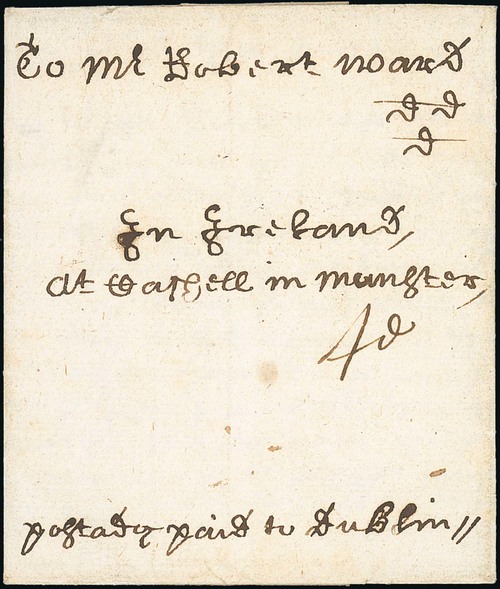 To Mr Robert Ward
d d
d
In Ireland,
At Cashell in Munster,
4d
postadg paid to Dublin //